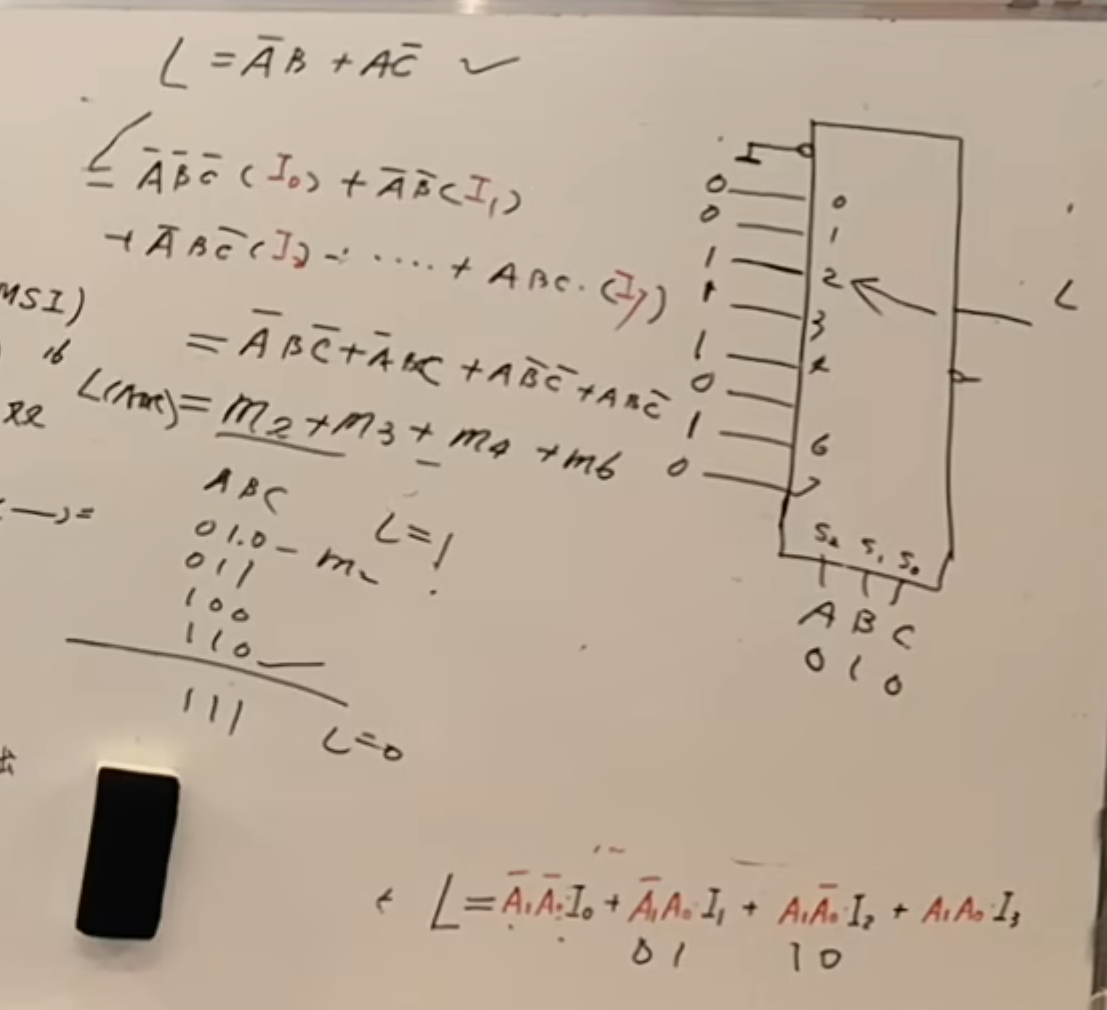 L = A̅B + AC̅ ✓
L
= A̅B̅C̅ (I₀) + A̅B̅(I₁)
+ A̅BC̅(I₂) + ····· + ABC·(I₇)
MSI)
16
= A̅BC̅ + A̅BC + AB̅C̅ + ABC̅
L(ABC) = m₂ + m₃ + m₄ + m6
ABC
010 — m₂
L=1
011
100
110
111
L=0
0 0
0 1
1 2
1 3
1 4
0
1 6
0 7
L
S₂ S₁ S₀
A B C
0 1 0
L = A̅₁A̅₀·I₀ + A̅₁A₀·I₁ + A₁A̅₀·I₂ + A₁A₀·I₃
01 10